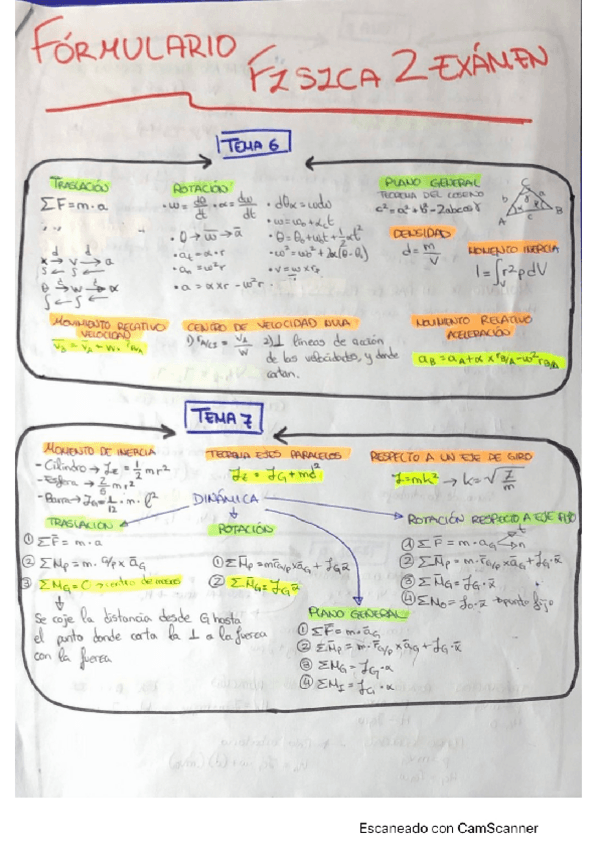 FÓRMULARIO FISICA 2 EXÁMEN
TEMA 6
TRASLACIÓN
ΣF = m·a
x →d v →d a
∫ ∫
θ →d w →d α
∫ ∫
ROTACIÓN
· w = dθ/dt · α = dw/dt
· θ → w̄ → ᾱ
· at = α×r
· an = w²r
· a = α×r − w²r
· αdθ = wdw
· w = w0 + αct
· θ = θ0 + w0t + ½αt²
· w² = w0² + 2α(θ−θ0)
· v = w×rp
PLANO GENERAL
TEOREMA DEL COSENO
c² = a² + b² − 2abcosγ
C
b a
A c B
DENSIDAD
d = m/V
MOMENTO INERCIA
I = ∫v r²ρdV
MOVIMIENTO RELATIVO VELOCIDAD
vB = vA + w × rB/A
CENTRO DE VELOCIDAD NULA
1) rA/CI = vA/W
2) ⊥ líneas de acción
de las velocidades, y donde
cortan.
MOVIMIENTO RELATIVO
ACELERACIÓN
aB = aA + α × rB/A − w²rB/A
TEMA 7
MOMENTO DE INERCIA
- Cilindro → Iz = ½mr²
- Esfera → 2/5 mr²
- Barra → IG = 1/12 · m · l²
TEOREMA EJES PARALELOS
Iz = IG + md²
RESPECTO A UN EJE DE GIRO
I = mk² → k = √(I/m)
DINÁMICA
TRASLACION
① ΣF̄ = m·a
② ΣMp = m · G/p × āG
③ ΣMG = 0 → centro de masas
Se coje la distancia desde G hasta
el punto donde corta la ⊥ a la fuerza
con la fuerza
ROTACIÓN
① ΣM̄p = m r̄G/p × āG + IGᾱ
② ΣM̄G = IGᾱ
PLANO GENERAL
① ΣF̄ = m·āG
② ΣM̄p = m·r̄G/p × āG + IG·ᾱ
③ ΣMG = IG·α
④ ΣMI = IG·α
ROTACIÓN RESPECTO A EJE FIJO
① ΣF̄ = m·aG t n
② ΣM̄p = m·r̄G/p × āG + IG·ᾱ
③ ΣMG = IG·ᾱ
④ ΣMO = IO·ᾱ → punto fijo
Escaneado con CamScanner